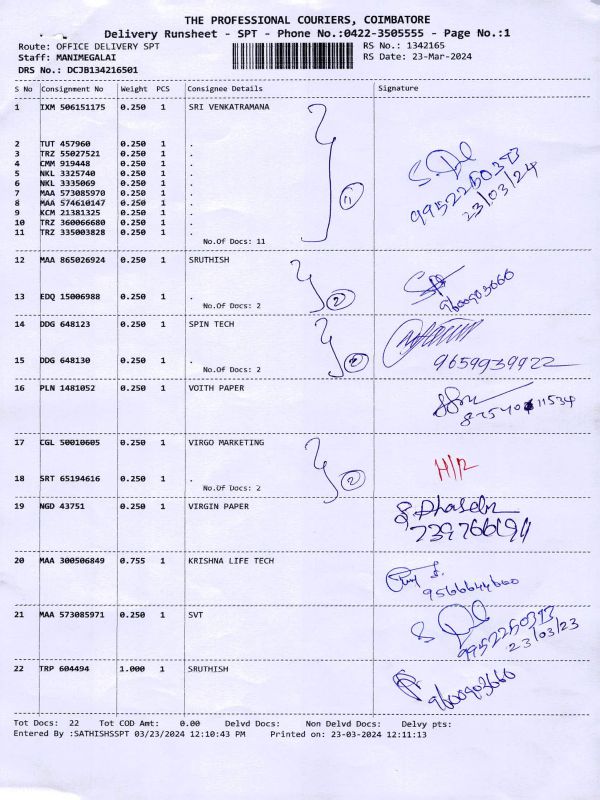 THE PROFESSIONAL COURIERS, COIMBATORE
Delivery Runsheet - SPT - Phone No.:0422-3505555 - Page No.:1
Route: OFFICE DELIVERY SPT RS No.: 1342165
Staff: MANIMEGALAI RS Date: 23-Mar-2024
DRS No.: DCJB134216501
S No Consignment No Weight PCS Consignee Details Signature
1 IXM 506151175 0.250 1 SRI VENKATRAMANA
2 TUT 457960 0.250 1 .
3 TRZ 55027521 0.250 1 .
4 CMM 919448 0.250 1 .
5 NKL 3325740 0.250 1 .
6 NKL 3335069 0.250 1 .
7 MAA 573085970 0.250 1 .
8 MAA 574610147 0.250 1 .
9 KCM 21381325 0.250 1 .
10 TRZ 360066680 0.250 1 .
11 TRZ 335003828 0.250 1 .
No.Of Docs: 11
11
9952250373
23/03/24
12 MAA 865026924 0.250 1 SRUTHISH
13 EDQ 15006988 0.250 1 .
No.Of Docs: 2
2
9600903660
14 DDG 648123 0.250 1 SPIN TECH
15 DDG 648130 0.250 1 .
No.Of Docs: 2
2
9659939922
16 PLN 1481052 0.250 1 VOITH PAPER
17 CGL 50010605 0.250 1 VIRGO MARKETING
18 SRT 65194616 0.250 1 .
No.Of Docs: 2
2
19 NGD 43751 0.250 1 VIRGIN PAPER
20 MAA 300506849 0.755 1 KRISHNA LIFE TECH
9566644660
21 MAA 573085971 0.250 1 SVT
9952250373
23/03/23
22 TRP 604494 1.000 1 SRUTHISH
9600903660
Tot Docs: 22 Tot COD Amt: 0.00 Delvd Docs: Non Delvd Docs: Delvy pts:
Entered By :SATHISHSSPT 03/23/2024 12:10:43 PM Printed on: 23-03-2024 12:11:13